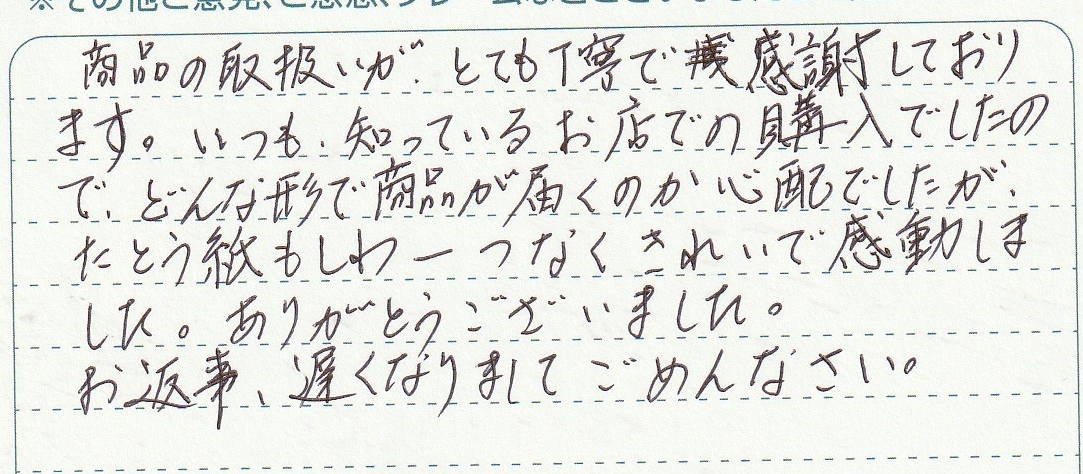 ※その他ご意見、ご感想、クレームなどございましたら
商品の取扱いが、とても丁寧で感謝しており
ます。いつも、知っているお店での購入でしたの
で、どんな形で商品が届くのか心配でしたが、
たとう紙もしわ一つなくきれいで感動しま
した。ありがとうございました。
お返事、遅くなりましてごめんなさい。